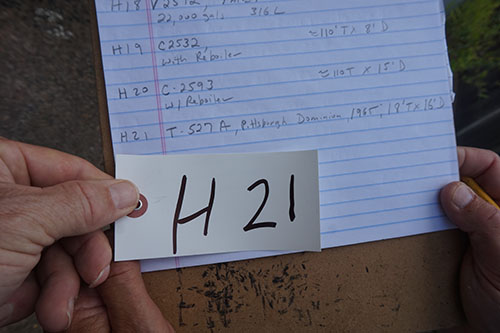 H18 V2512,
22,000 gals, 316L
H19 C2532, ≈110'T x 8'D
with Reboiler
H20 C-2593 ≈110T x 15'D
w/ Reboiler
H21 T-527A, Pittsburgh Dominion, 1965, 18'T x 16'D
H 21